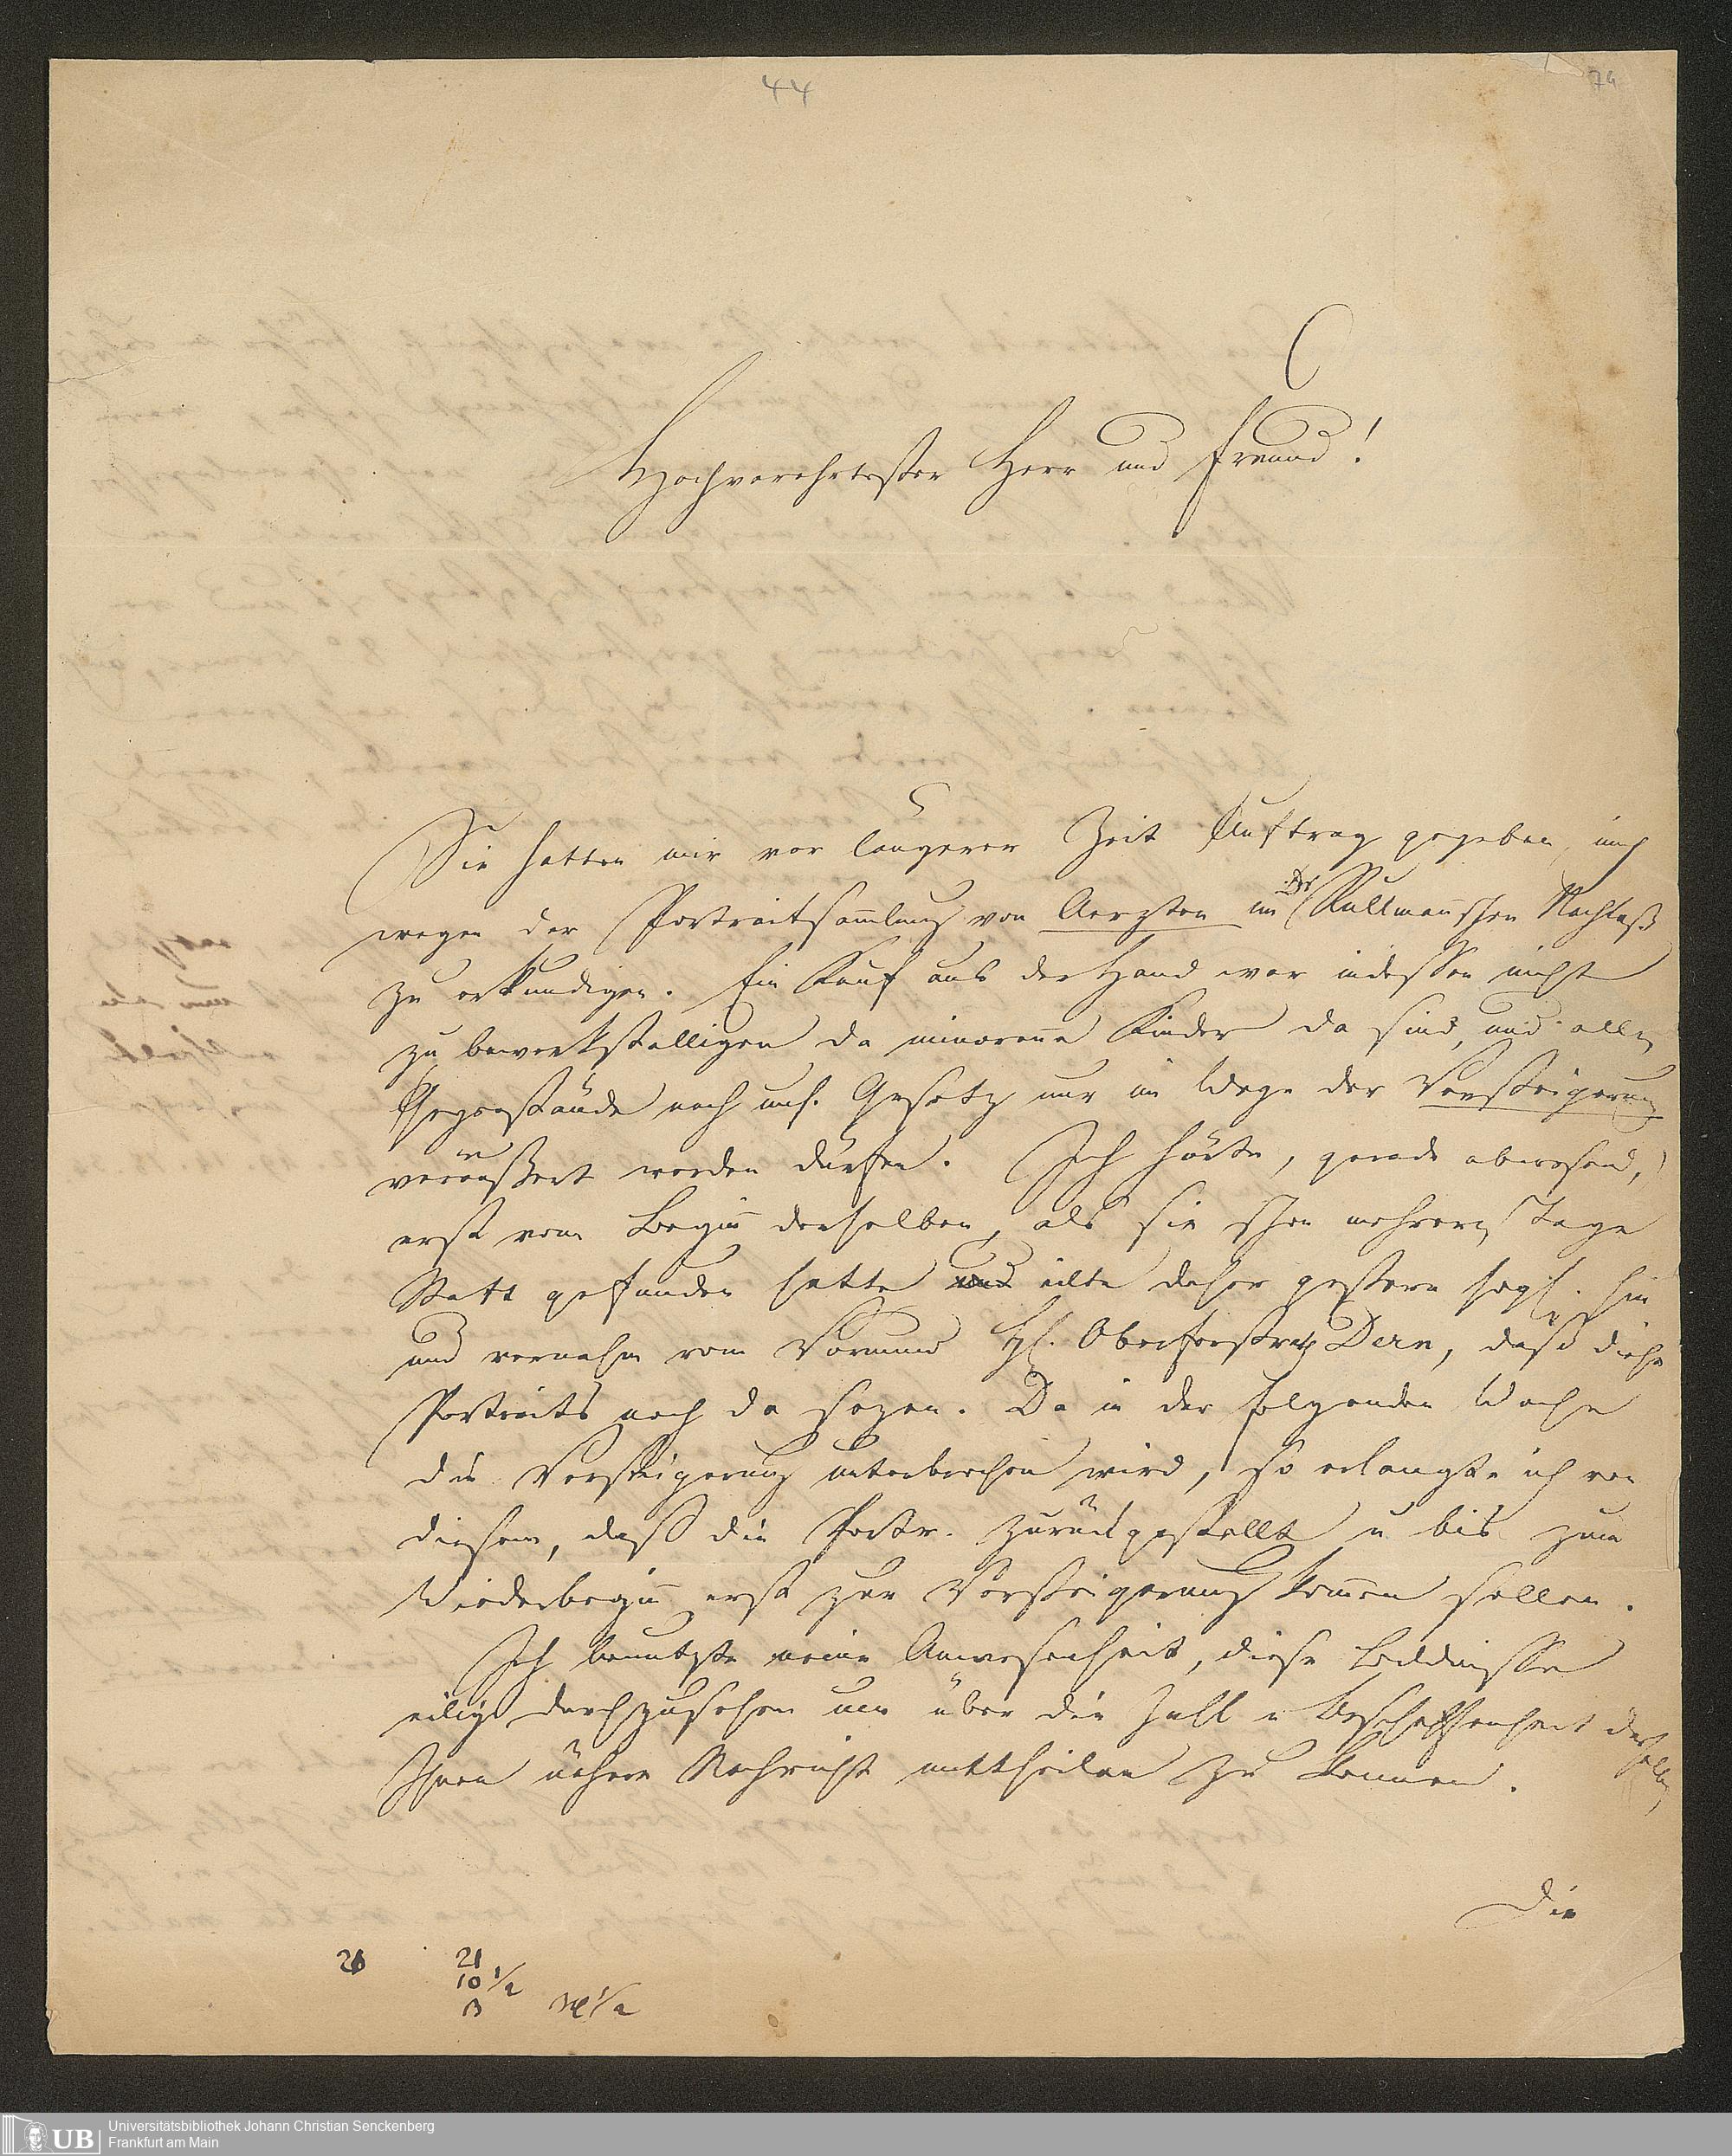 44
74
Hochverehrtester Herr und Freund!
Sie hatten mir vor längerer Zeit Auftrag gegeben, mich
wegen der Portraitsam̅lung von Aerzten im Dr Rullman̅schen Nachlaß
zu erkundigen. Ein Kauf aus der Hand war indessen nicht
zu bewerkstelligen da minoren̅e Kinder da sind, und alle
Gegenstände nach uns. Gesetz nur im Wege der Versteigerung
veräußert werden dürfen. Ich hörte, gerade abwesend,
erst vom Begin̅ derselben, als sie schon mehrere Tage
Statt gefunden hatte und eilte daher gestern sogl. hin
und vernahm vom Vormund H. Oberforstrath Dern, daß diese
Portraits noch da seyen. Da in der folgenden Woche
die Versteigerung unterbrochen wird, so erlangte ich von
diesem, daß die Portr. zurückgestellt u bis zum
Wiederbegin̅ erst zur Versteigerung kom̅en sollen.
Ich benutzte meine Anwesenheit, diese Bildnisse
eiligst durchzusehen um über die Zahl u Beschaffenheit derselben
Ihnen nähere Nachricht mittheilen zu können.
Die
21
10 1/2
Universitätsbibliothek Johann Christian Senckenberg
UB Frankfurt am Main